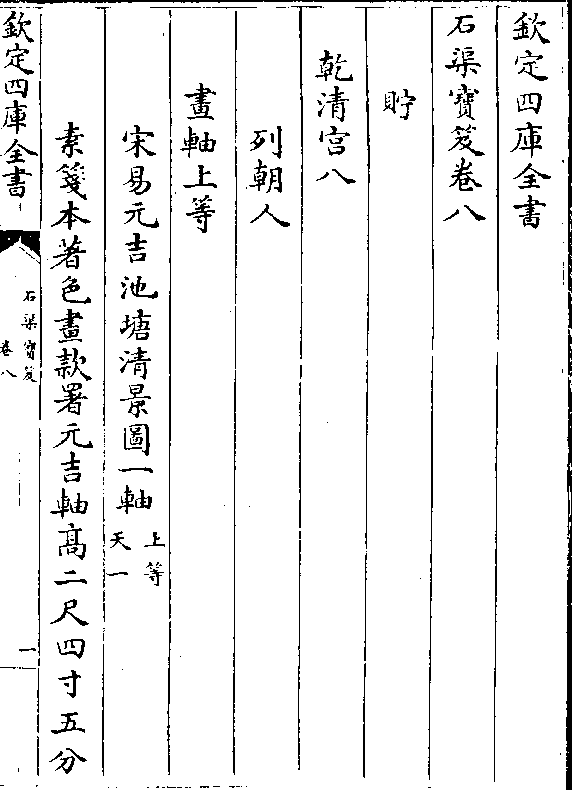 欽定四庫全書
石渠寶笈卷八
貯
乾清宫八
列朝人
畫軸上等
宋易元吉池塘清景圖一軸 上等
天一
素箋本著色畫款署元吉軸髙二尺四寸五分
欽定四庫全書
石渠寶笈
卷八
一